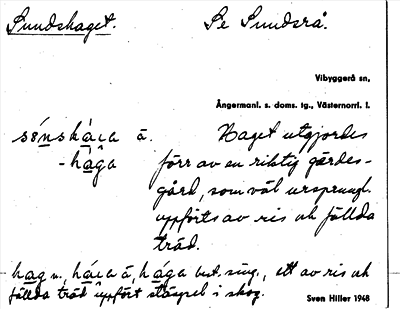 Sundshaget. Se Sundsrå.
Vibyggerå sn,
Ångermanl. s. doms. tg., Västernorrl. l.
Haget utgjordes
förr av en riktig gärdes-
gård, som väl ursprungl.
uppförts av ris och fällda
träd.
best. sing., ett av ris och
fällda träd uppfört stängsel i skog.
Sven Hiller 1948